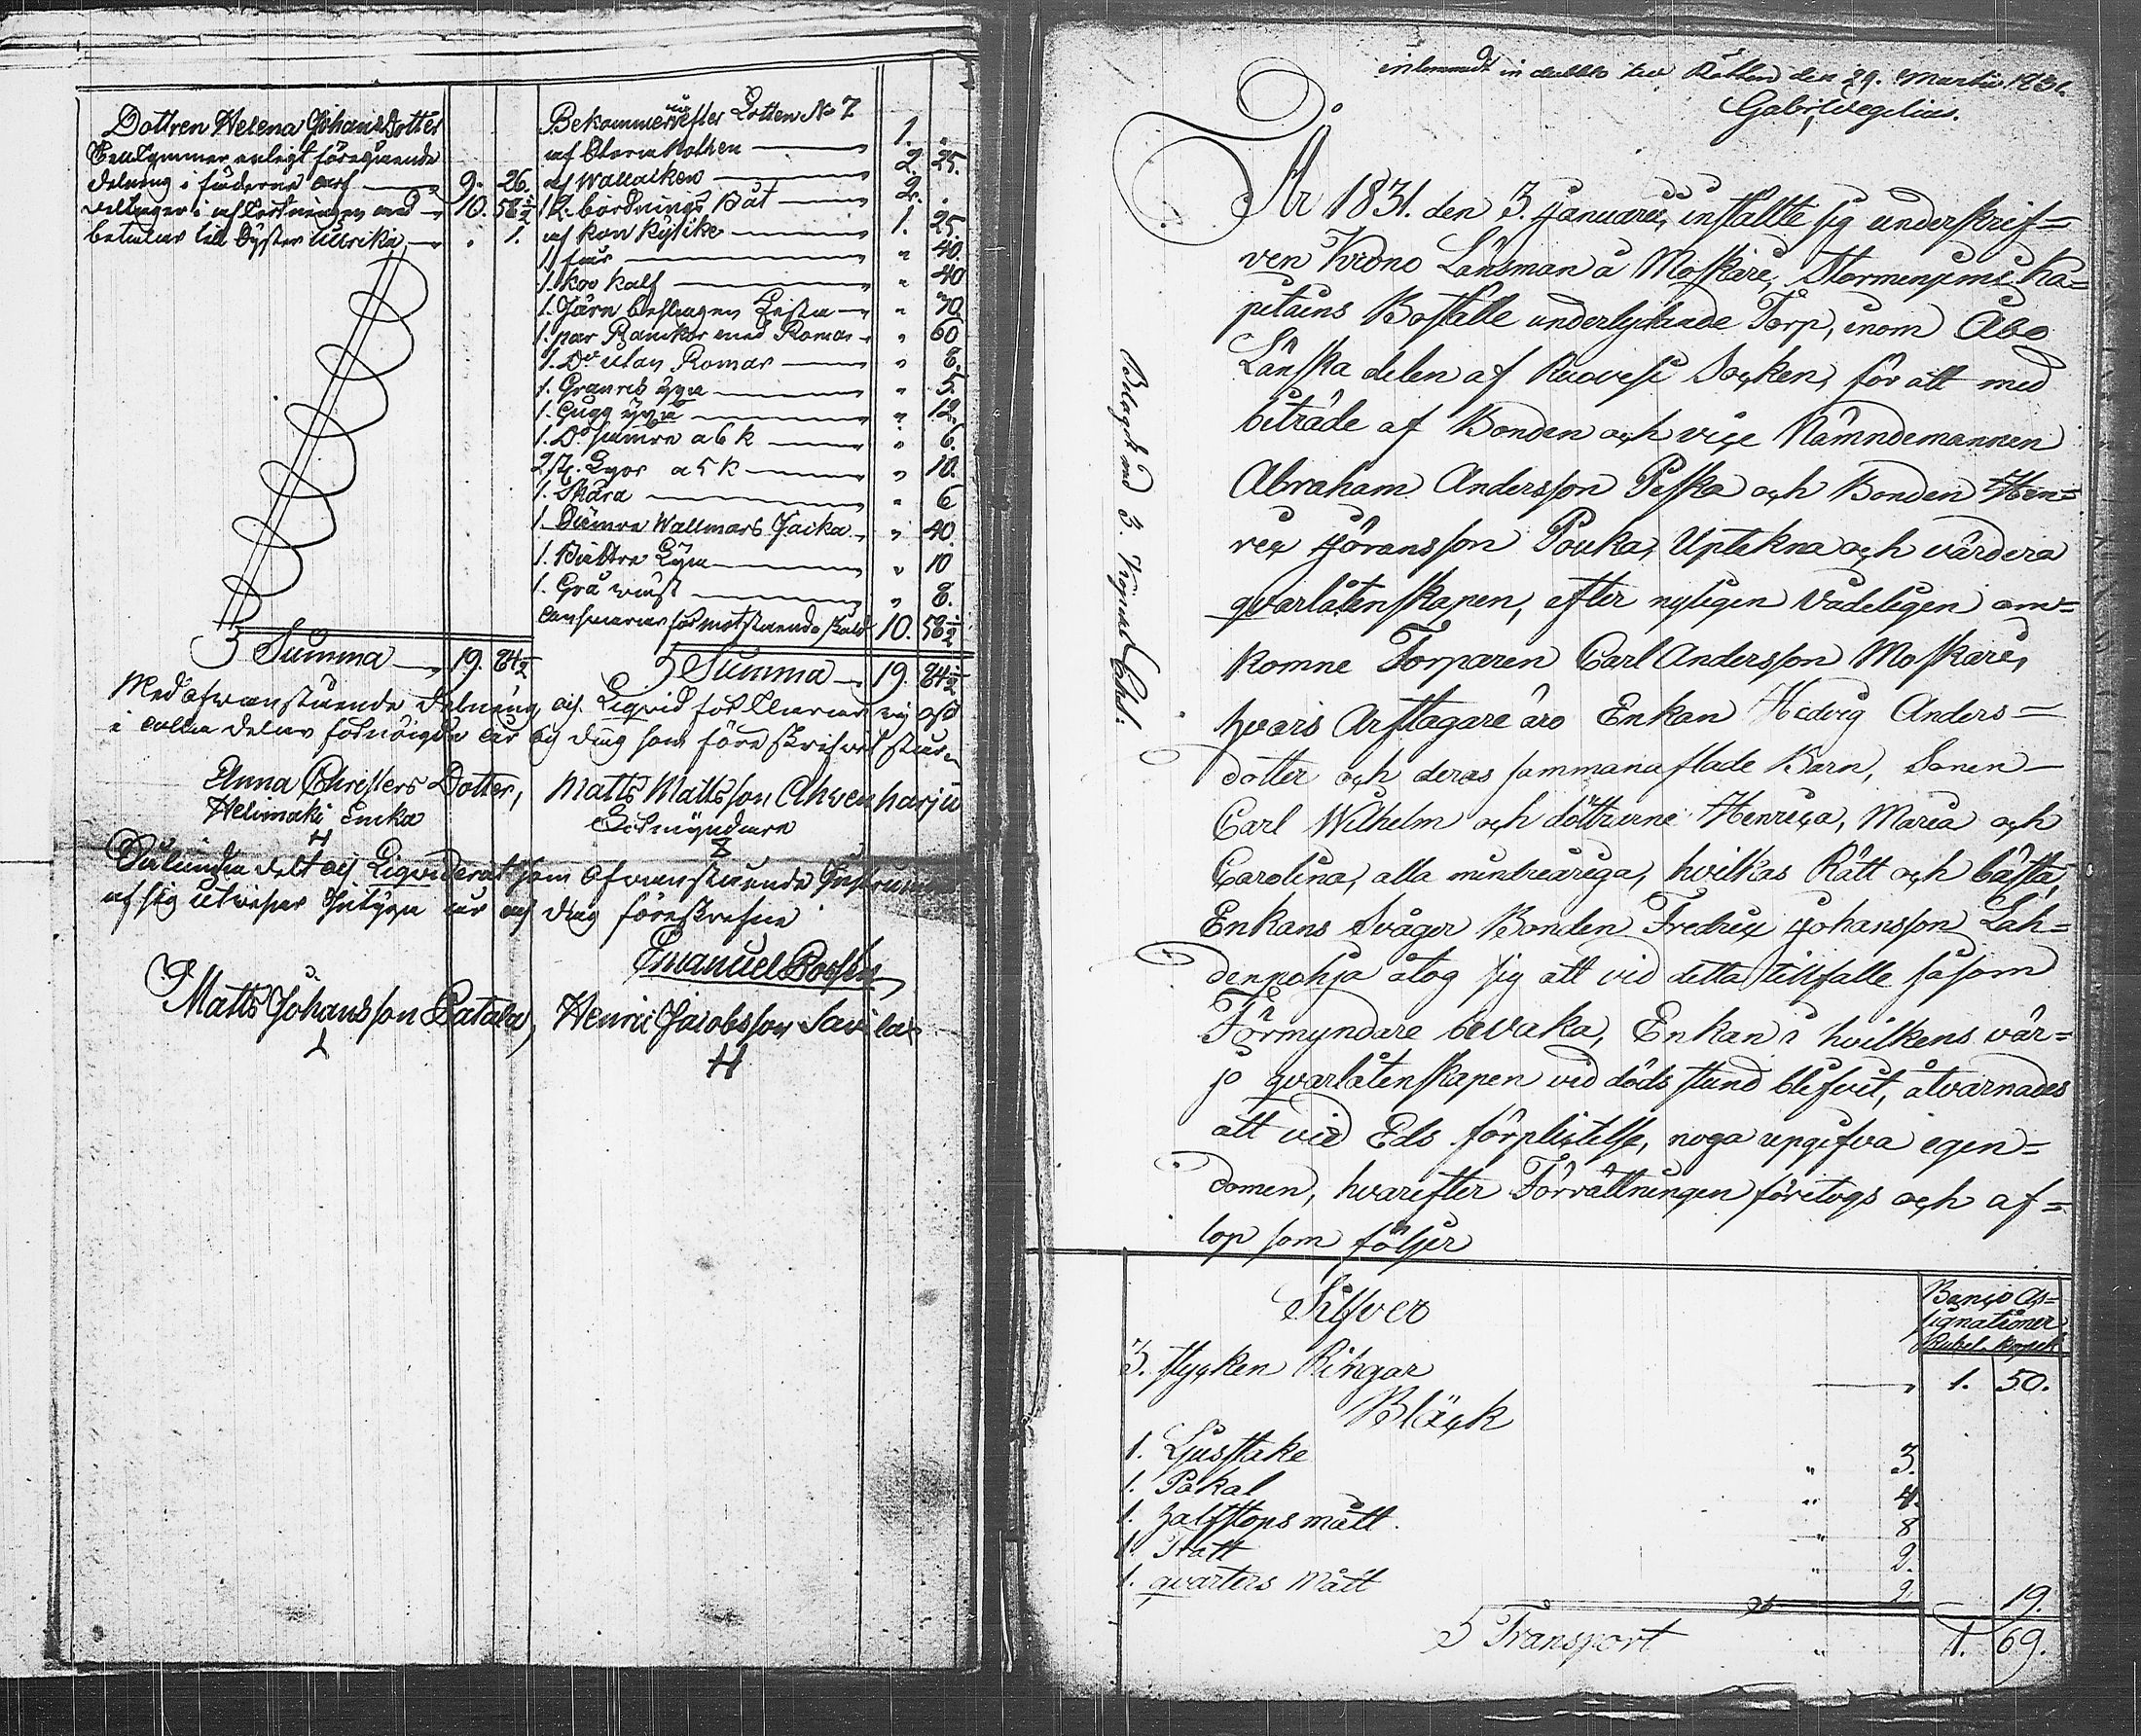 Dottren Helena Johans Dotter
Tillkommer enligt föregående
delning i fäderne arf 9. 26.
deltager i afkortningen med 10. 58 1/2
betalar till Syster Ulrika " 1.
Summa 19. 84 1/2
Bekommer nu efter Lotten No 7
af Storm Nothen 1. "
af Wallacken 2. 25.
bördnings Båt 2. "
af kon Kyÿike 1. 25.
1. får " 40.
1. ko kalf " 40
1. Järn beslagen Kista " 70.
1. par Ranckor med Romar " 60
1. Do utan Romar " 8.
1. Granris yxa " 5.
1. Hugg yxa " 12.
1. Do sämre a 6 k " 6.
2. st. Lyor a 5 k " 10.
1. Skära " 6
1. Sämre Wallmars Jacka " 40.
1. Bättre Lyra " 10
1. Grå väst " 8.
ansvarar för motstående skuld 10. 58 1/2
Summa 19. 84 1/2
Med ofvanstående delning och Liqvid förklarar vi oss
i alla delar förnöigde år och dag som före skrifvet står.
Anna Christers Dotter, Matts Mattsson Ahvenharju
Helinmäki Enka Förmyndare
Sålunda delt och Liqviderat som ofvanstående Instrument
af sig utvisar Intyga år och dag föreskrefne
Emanuel Boisen
Matts Johansson Patala, Henric Jacobsson Savilax
H
inlemnadt in dupplo till Rätten den 29. Martii 1831.
Gabr. Wegelius.
År 1831. den 3. Januarii, instälte sig underskrif=
ven Krono Länsman å Moskare, Stormenjemi Ka=
pitains Boställe underlydande Torp, inom Åbo
Länska delen af Ruovesi Socken, för att med
biträde af Bonden och vice Nämndemannen
Abraham Andersson Peska och Bonden Hen=
ric Jöransson Pouka, Uptekna och värdera
qvarlåtenskapen, efter nyligen vådeligen om=
komne Torparen Carl Andersson Moskare,
hvars Arftagare äro Enkan Hedvig Anders=
dotter och deras sammanaflade Barn, Sonen
Carl Wilhelm och döttrarne Henrica, Maria och
Carolina, alla mindreåriga, hvilkas Rätt och bästa,
Enkans Svåger Bonden Fredric Johansson Läh=
denpohja åtog sig att vid detta tillfälle såsom
Förmyndare bevaka, Enkan i hvilkens vär=
jo qvarlåtenskapen vid döds stund blifvit, åtvarnades
att vid Eds förplictelse, noga upgifva egen=
domen, hvarefter Förrättningen företogs och af=
lop som följer
Belagdt med 3. Kopeks Chart:
Banco As=
signationer
Rubel. Kopek
Silfver
3. stycken Ringar 1. 50.
Bläck
1. Ljusstake " 3.
1. Pokal " 4.
1. halfstops mått. " 8
1. Tratt " 2.
1. qvarters Mått " 2. 19.
Transport " 1. 69.